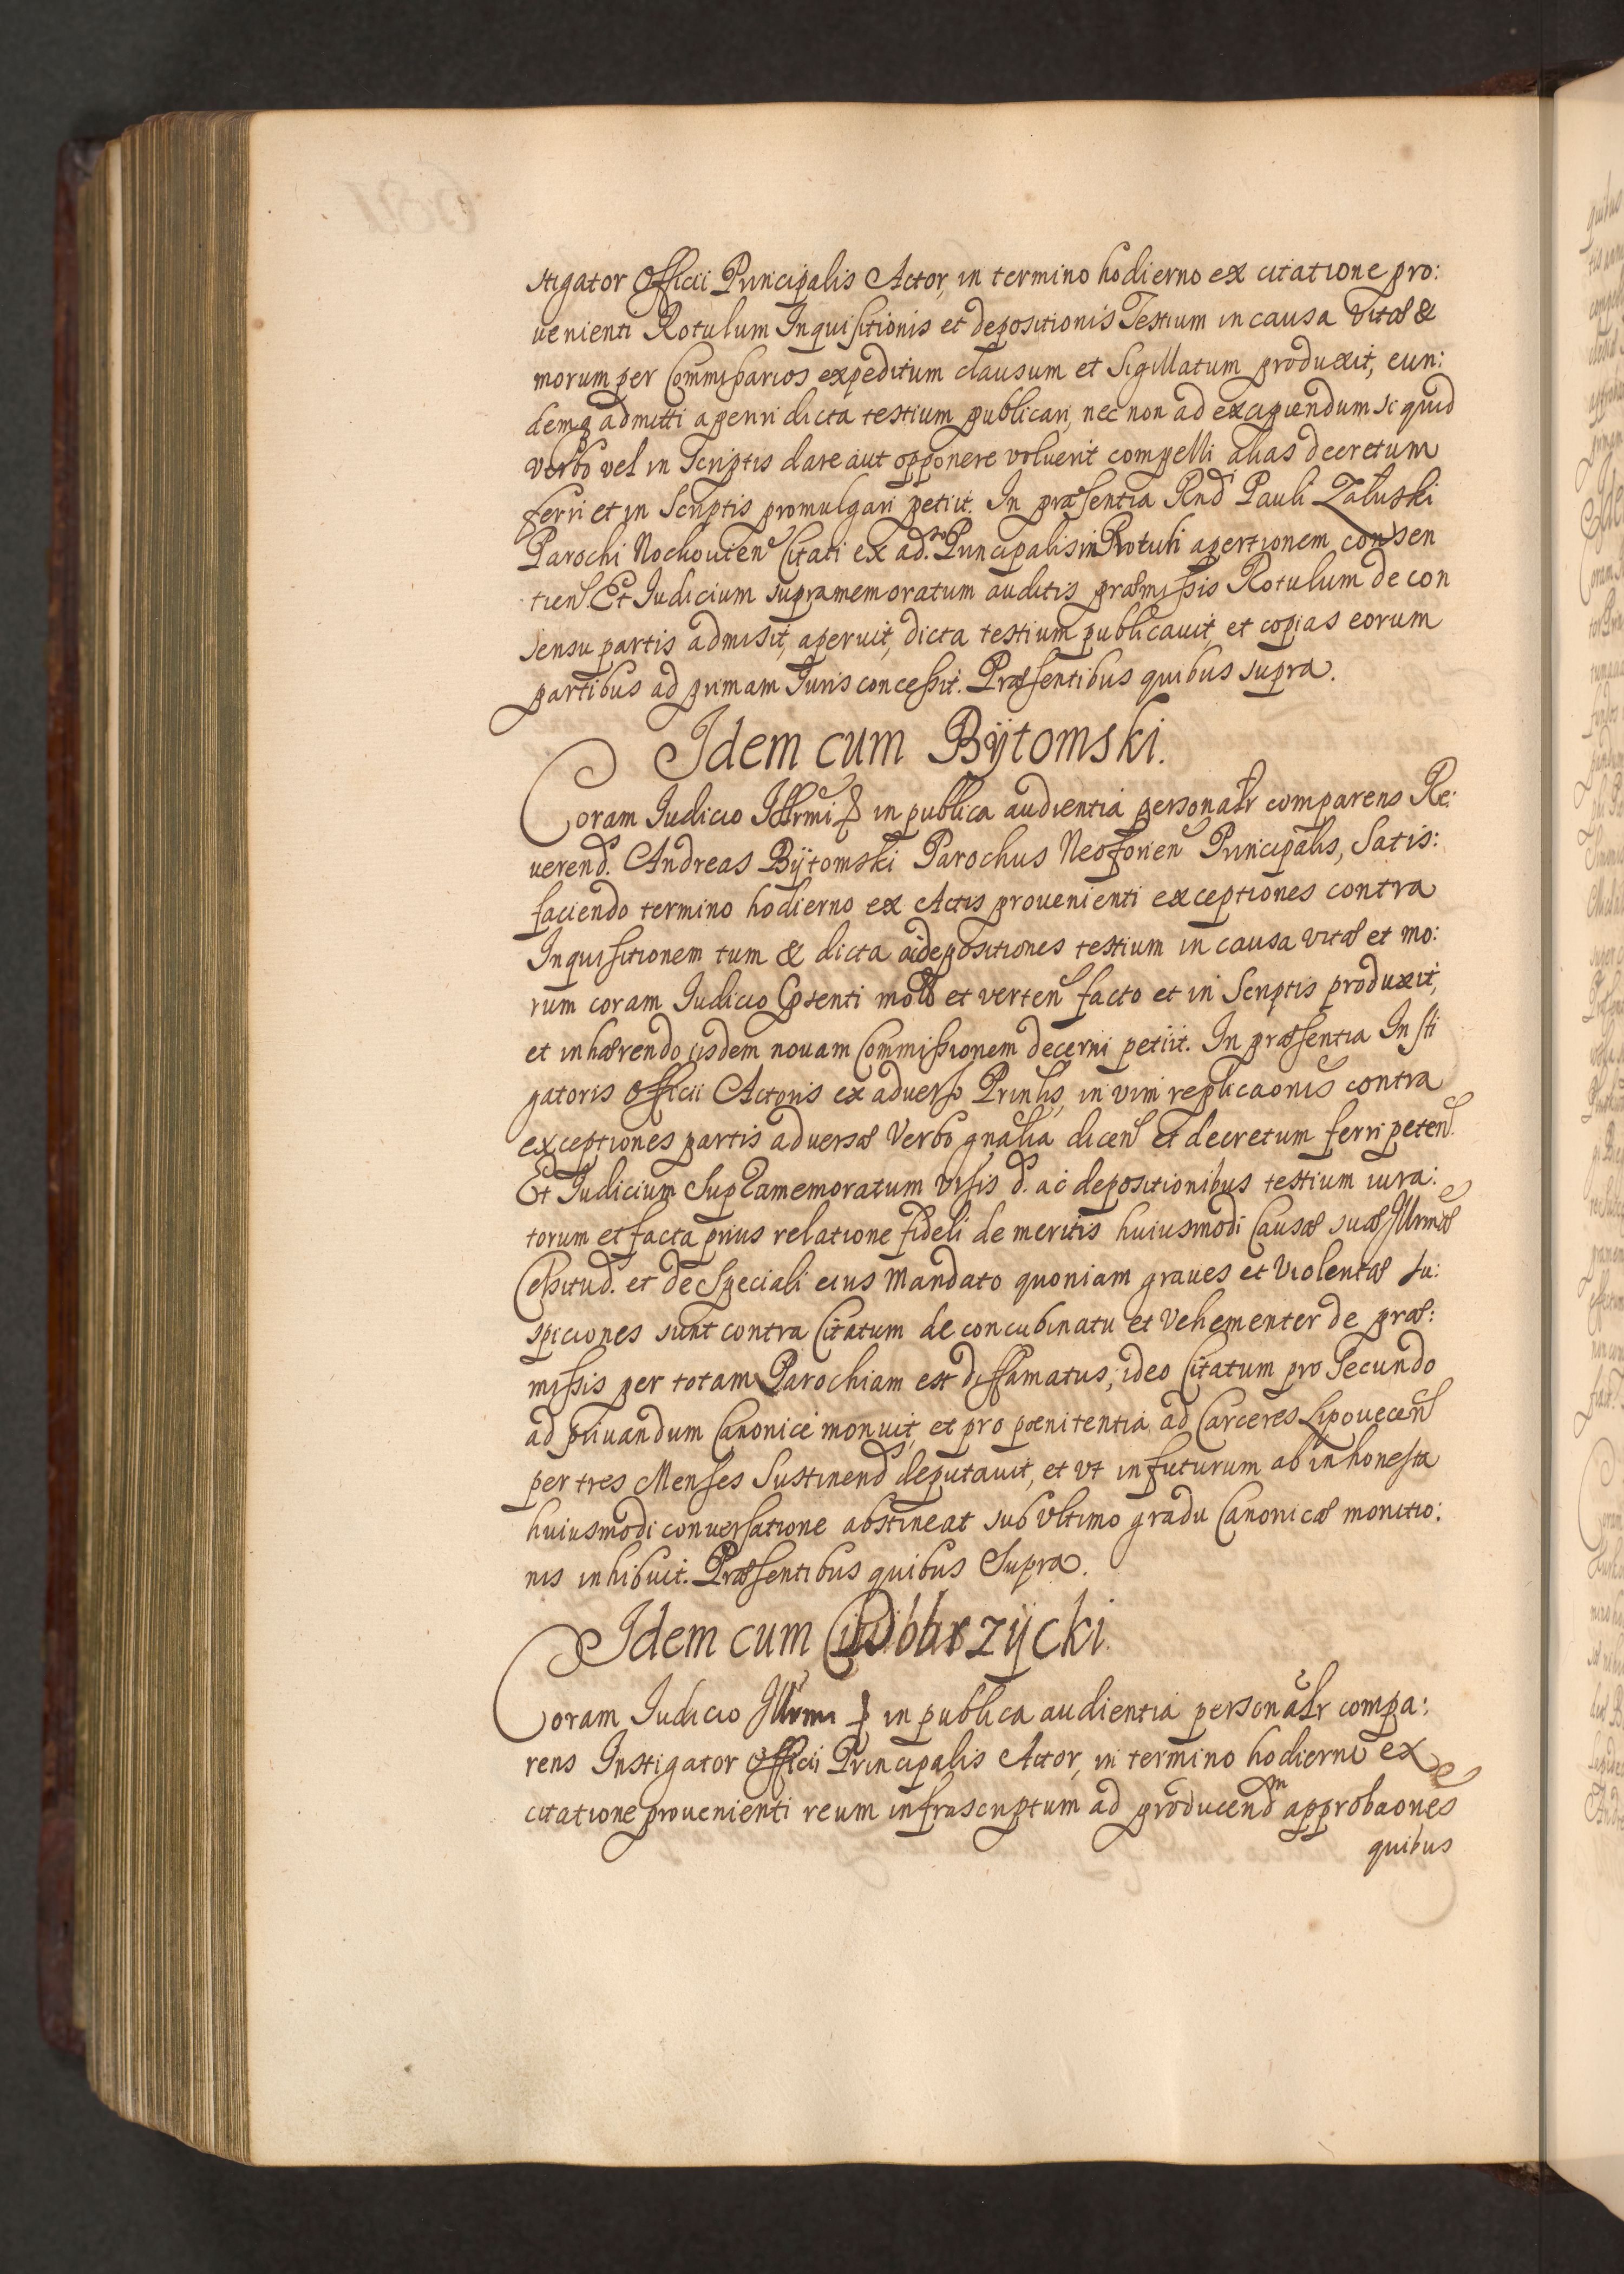 stigator Officii Principalis Actor, in termino hodierno ex citatione pro:
uenienti Rotulum Inquisitionis et depositionis Testium in causa Vitæ &
morum per Commissarios expeditum clausum et Sigillatum produxit, eun:
demq admitti aperiri dicta testium publicari, nec non ad excipiendum si quid
verbo vel in Scriptis dare aut opponere voluerit compelli alias decretum
ferri et in Scriptis promulgari petiit. In præsentia Rnd Pauli Załuski
Parochi Nochouien Citati ex ad.so Principalis in Rotuli apertionem consen
tien. Et Iudicium supramemoratum auditis præmissis Rotulum de con
sensu partis admisit, aperuit, dicta testium publicauit, et copias eorum
partibus ad primam Iuris concessit. Præsentibus quibus supra.
Idem cum Bÿtomski.
Coram Iudicio Illrmi in publica audientia personalr comparens Re:
uerend. Andreas Bÿtomski Parochus Neoforien Principalis, Satis:
faciendo termino hodierno ex Actis prouenienti exceptiones contra
Inquisitionem tum & dicta ac depositiones testium in causa vitæ et mo:
rum coram Iudicio et verten facto et in Scriptis produxit,
et inhærendo iisdem nouam Commissionem decerni petiit. In præsentia Insti
gatoris Officii Actoris ex aduerso Prinlis, in vim replicaonis contra
exceptiones partis aduersæ Verbo gnalia dicen et decretum ferri peten.
Et Iudicium Supramemoratum visis d. ac depositionibus testium iura:
torum et facta prius relatione fideli de meritis huiusmodi Causæ suæ Illrmæ
Celsitud. et de Speciali eius Mandato quoniam graues et Violentæ su:
spiciones sunt contra Citatum de concubinatu et Vehementer de præ:
missis per totam Parochiam est diffamatus, ideo Citatum pro Secundo
ad priuandum Canonice monuit, et pro pœnitentia ad Carceres Lipouecen
per tres Menses Sustinend deputauit, et vt in futurum ab inhonesta
huiusmodi conuersatione abstineat sub vltimo gradu Canonicæ monitio:
nis inhibuit. Præsentibus quibus Supra.
Idem cum
Coram Iudicio Illrmi in publica audientia personalr compa:
rens Instigator Officii Principalis Actor, in termino hodierno ex
citatione prouenienti reum infrascriptum ad producendm approbaones
quibus